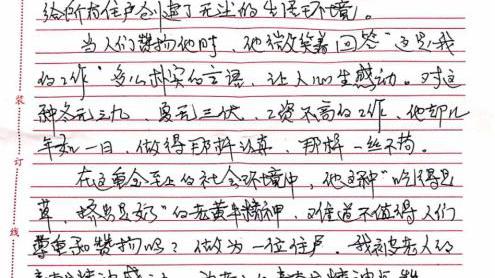 给所有住户创建了无尘的生活环境。
当人们赞扬他时，他微笑着回答"这是我
的工作"多么朴实的言语，让人心生感动。对这
种冬无三九，夏无三伏，工资不高的工作，他却几
年如一日，做得那样认真，那样一丝不苟。
在这重金至上的社会环境中，他这种"吃得是
草，挤出是奶"的老黄牛精神，难道不值得人们
尊重和赞扬吗？做为一位住户，我被老人的
装
订
线